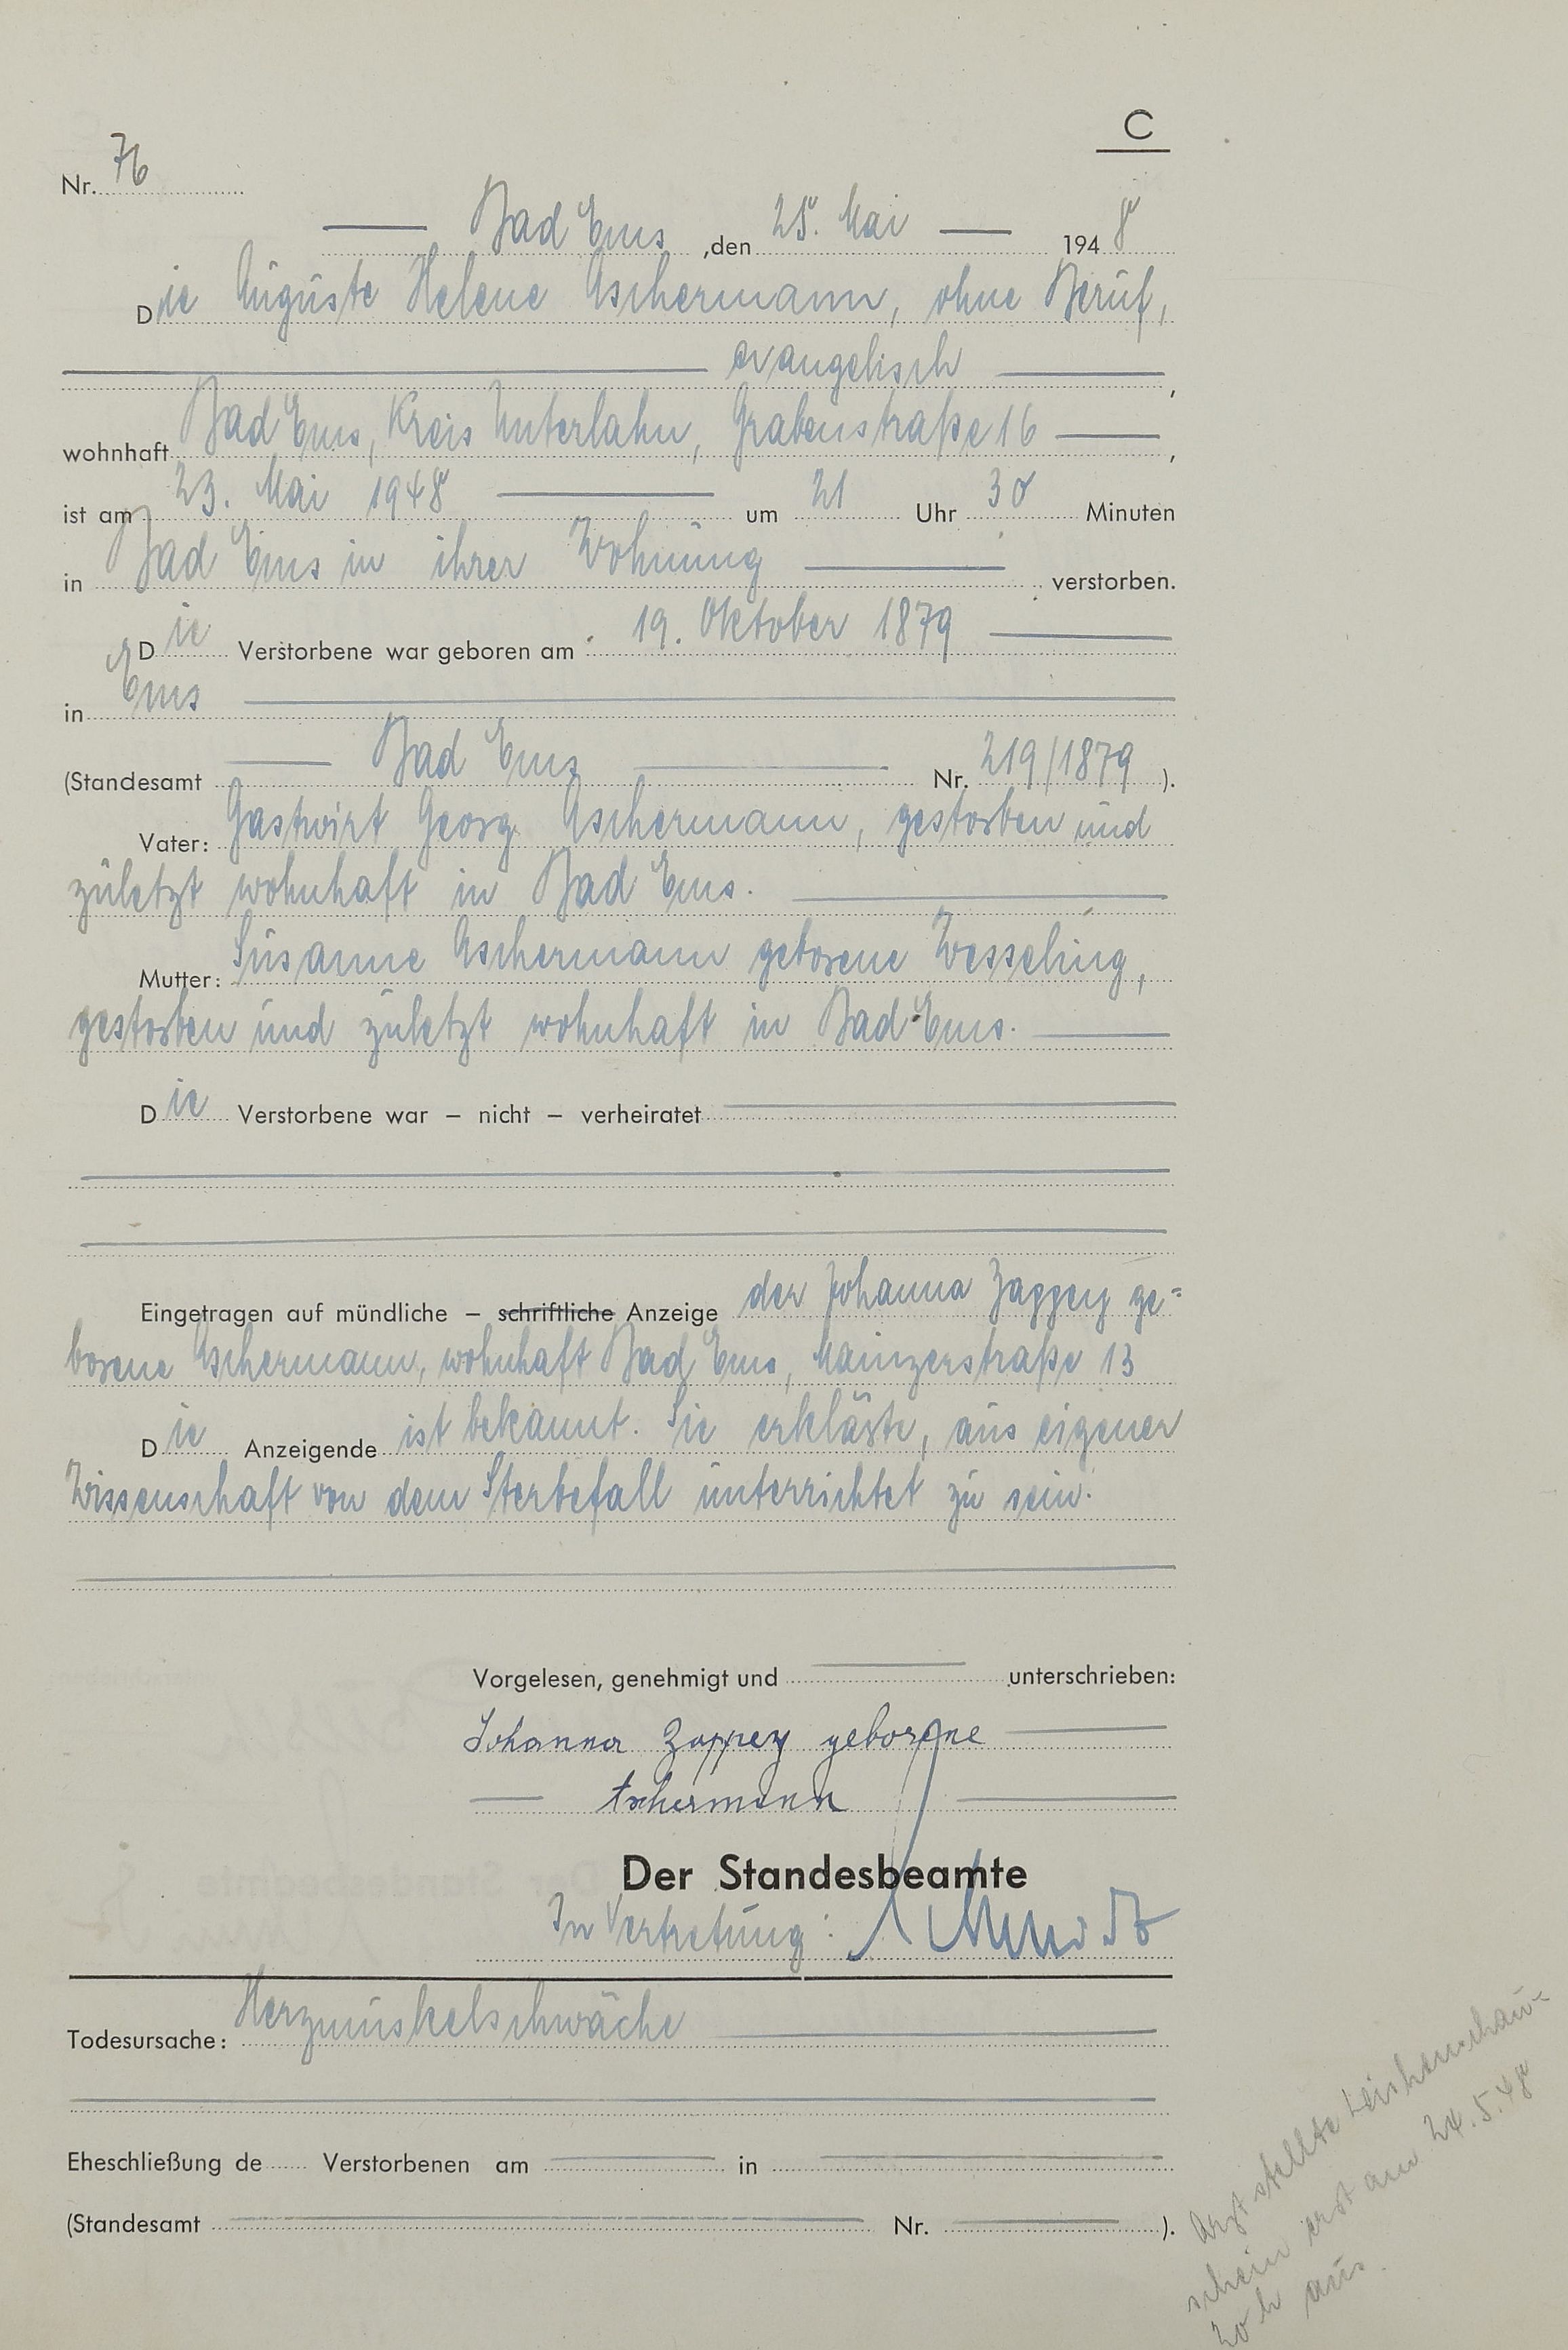 C
Nr. 76
Bad Ems, den 25. Mai 1948
Die Auguste Helene Aschermann, ohne Beruf,
evangelisch,
wohnhaft Bad Ems, Kreis Unterlahn, Grabenstraße 16,
ist am 23. Mai 1948 um 21 Uhr 30 Minuten
in Bad Ems in ihrer Wohnung verstorben.
Die Verstorbene war geboren am 19. Oktober 1879
in Ems
(Standesamt Bad Ems Nr. 219/1879).
Vater: Gastwirt Georg Aschermann, gestorben und
zuletzt wohnhaft in Bad Ems.
Mutter: Susanne Aschermann geborene Wesseling,
gestorben und zuletzt wohnhaft in Bad Ems.
Die Verstorbene war – nicht – verheiratet
Eingetragen auf mündliche – schriftliche Anzeige der Johanna ge=
borene Aschermann, wohnhaft Bad Ems, Mainzerstraße 13
Die Anzeigende ist bekannt. Sie erklärte, aus eigener
Wissenschaft von dem Sterbefall unterrichtet zu sein.
Vorgelesen, genehmigt und unterschrieben:
Johanna geborene
Aschermann
Der Standesbeamte
In Vertretung:
Todesursache: Herzmuskelschwäche
Eheschließung de Verstorbenen am in
(Standesamt Nr. ).
Arzt stellte Leichenschau-
schein erst am 24.5.48
20 h aus.